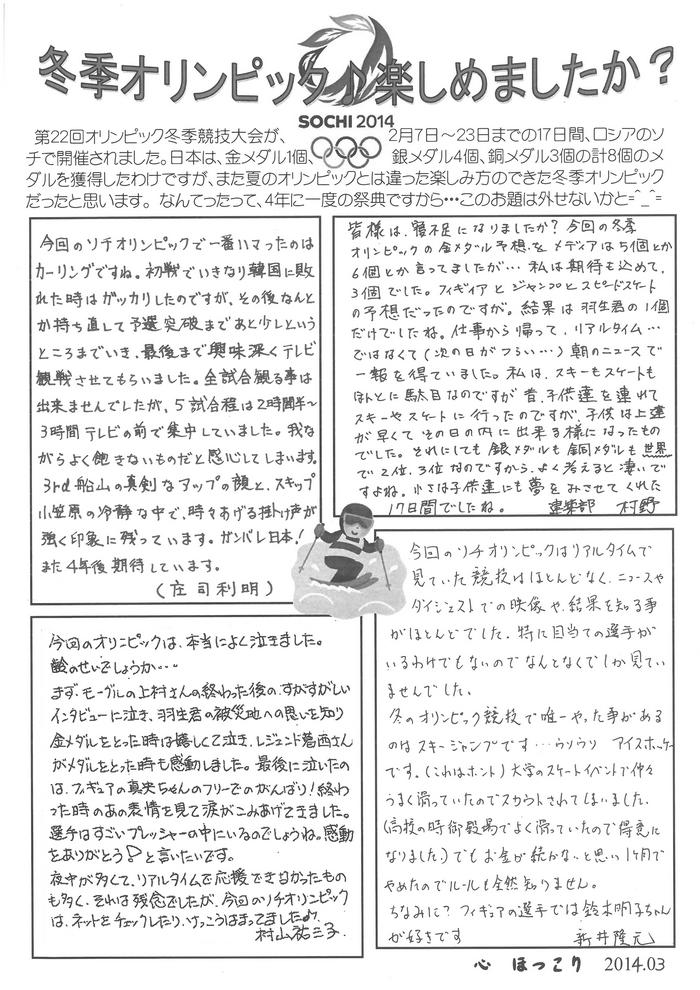 冬季オリンピック♪楽しめましたか？
SOCHI 2014
第22回オリンピック冬季競技大会が、2月7日～23日までの17日間、ロシアのソ
チで開催されました。日本は、金メダル1個、銀メダル4個、銅メダル3個の計8個のメ
ダルを獲得したわけですが、また夏のオリンピックとは違った楽しみ方のできた冬季オリンピック
だったと思います。なんてったって、4年に一度の祭典ですから・・・このお題は外せないかと=^_^=
今回のソチオリンピックで一番ハマったのは
カーリングですね。初戦でいきなり韓国に敗
れた時はガッカリしたのですが、その後なんと
か持ち直して予選突破まであと少しという
ところまでいき、最後まで興味深くテレビ
観戦させてもらいました。全試合観る事は
出来ませんでしたが、5試合程は2時間半～
3時間テレビの前で集中していました。我な
がらよく飽きないものだと感心してしまいます。
3rd船山の真剣なアップの顔と、スキップ
小笠原の冷静な中で、時々あげる掛け声が
強く印象に残っています。ガンバレ日本!
また4年後期待しています。
(庄司利明)
皆様は、寝不足になりましたか？今回の冬季
オリンピックの金メダル予想を メディアは5個とか
6個とか言ってましたが… 私は期待も込めて、
3個でした。フィギィアとジャンプとスピードスケート
の予想だったのですが。結果は羽生君の1個
だけでしたね。仕事から帰って、リアルタイム…
ではなくて(次の日がつらい…)朝のニュースで
一報を得ていました。私は、スキーもスケートも
ほんとに駄目なのですが昔、子供達を連れて
スキーやスケートに行ったのですが、子供は上達
が早くてその日の内に出来る様になったもの
でした。それにしても銀メダルも銅メダルも世界
で2位、3位なのですから、よく考えると凄いで
すよね。小さな子供達にも夢をみさせてくれた
17日間でしたね。 建築部 村野
今回のオリンピックは、本当によく泣きました。
齢のせいでしょうか…
まず、モーグルの上村さんの終わった後の、すがすがしい
インタビューに泣き、羽生君の被災地への思いを知り
金メダルをとった時は嬉しくて泣き、レジェンド葛西さん
がメダルをとった時も感動しました。最後に泣いたの
は、フィギュアの真央ちゃんのフリーでのがんばり!終わ
った時のあの表情を見て涙がこみあげてきました。
選手はすごいプレッシャーの中にいるのでしょうね。感動
をありがとう♡と言いたいです。
夜中が多くて、リアルタイムで応援できなかったもの
も多く、それは残念でしたが、今回のソチオリンピック
は、ネットをチェックしたり、けっこうはまってました♪
村山祐三子
今回のソチオリンピックはリアルタイムで
見ていた競技はほとんどなく、ニュースや
ダイジェストでの映像や、結果を知る事
がほとんどでした。特に目当ての選手が
いるわけでもないのでなんとなくでしか見てい
ませんでした。
冬のオリンピック競技で唯一やった事がある
のはスキージャンプです…ウソウソ アイスホッケー
です。(これはホント)大学のスケートイベントで仲々
うまく滑っていたのでスカウトされてしまいました。
(高校の時御殿場でよく滑っていたので得意に
なりました)でもお金が続かないと思い1ヶ月で
やめたのでルールも全然知りません。
ちなみに？フィギュアの選手では鈴木明子ちゃん
が好きです 新井隆元
心 ほっこり 2014.03